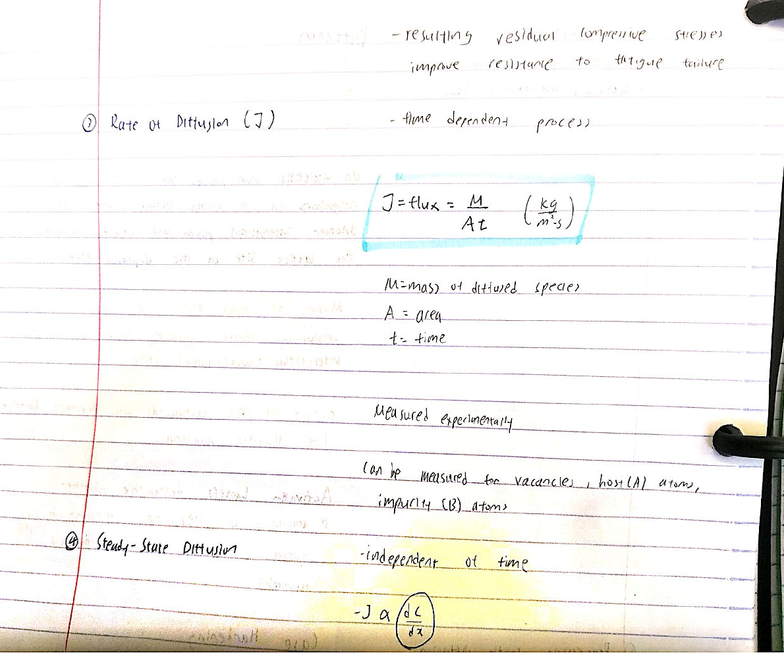 - resulting residual compressive stresses
improve resistance to fatigue failure
③ Rate of Diffusion (J)
- time dependent process
J = flux = M/At (kg/m²·s)
M = mass of diffused species
A = area
t = time
Measured experimentally
Can be measured for vacancies, host (A) atoms,
impurity (B) atoms
④ Steady-State Diffusion
- independent of time
- J α dC/dx